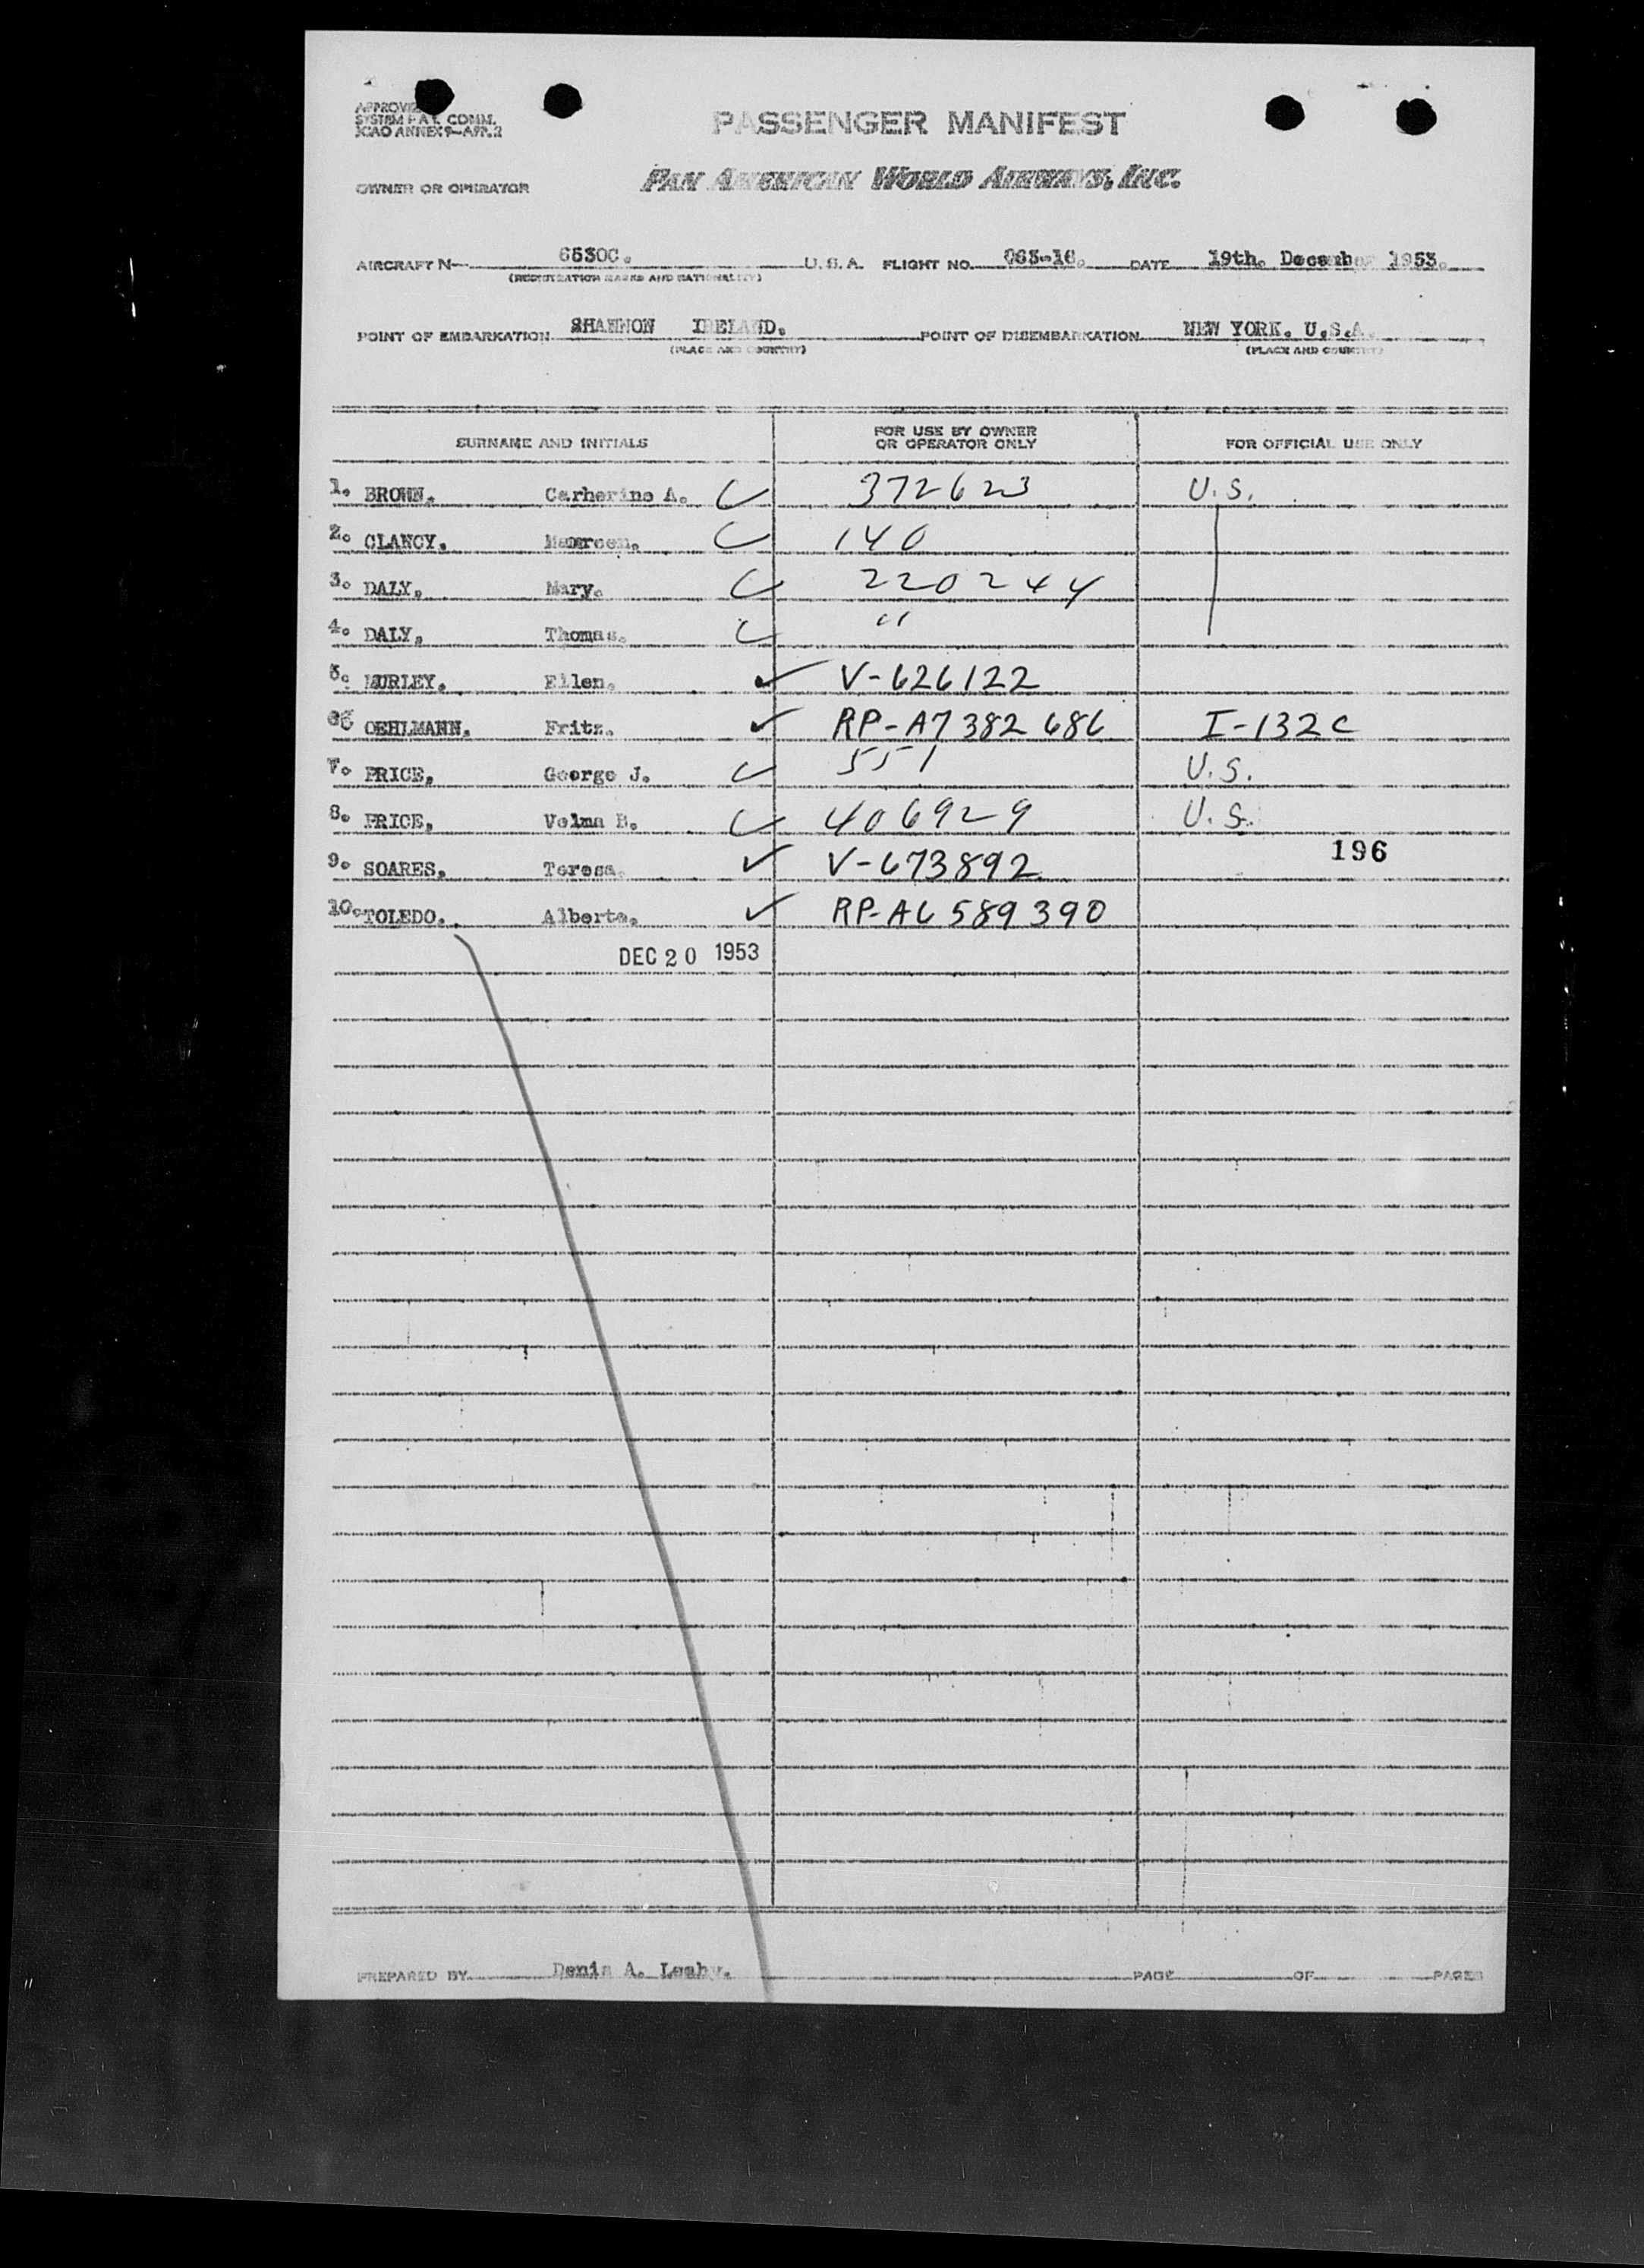 SYSTEM F.A.L. COMM.
ICAO ANNEX 9—APP. 2
PASSENGER MANIFEST
OWNER OR OPERATOR PAN AMERICAN WORLD AIRWAYS, INC.
AIRCRAFT N— 6530C. U.S.A. FLIGHT NO. 063-16. DATE 19th. December 1953.
(REGISTRATION MARKS AND NATIONALITY)
POINT OF EMBARKATION SHANNON IRELAND. POINT OF DISEMBARKATION NEW YORK. U.S.A.
(PLACE AND COUNTRY) (PLACE AND COUNTRY)
SURNAME AND INITIALS FOR USE BY OWNER OR OPERATOR ONLY FOR OFFICIAL USE ONLY
1. BROWN. Carherine A. 372623 U.S.
2. CLANCY. 140
3. DALY, Mary. 220244
4. DALY, Thomas. "
5. MURLEY. Ellen. V-626122
6 OEHLMANN. Fritz. RP-A7382686 I-132C
7. PRICE, George J. 551 U.S.
8. PRICE, Velma B. 406929 U.S.
196
9. SOARES, Teresa. V-673892
10. TOLEDO. Alberta. RP-A6589390
DEC 20 1953
PREPARED BY Denis A. Leahy. PAGE OF PAGES